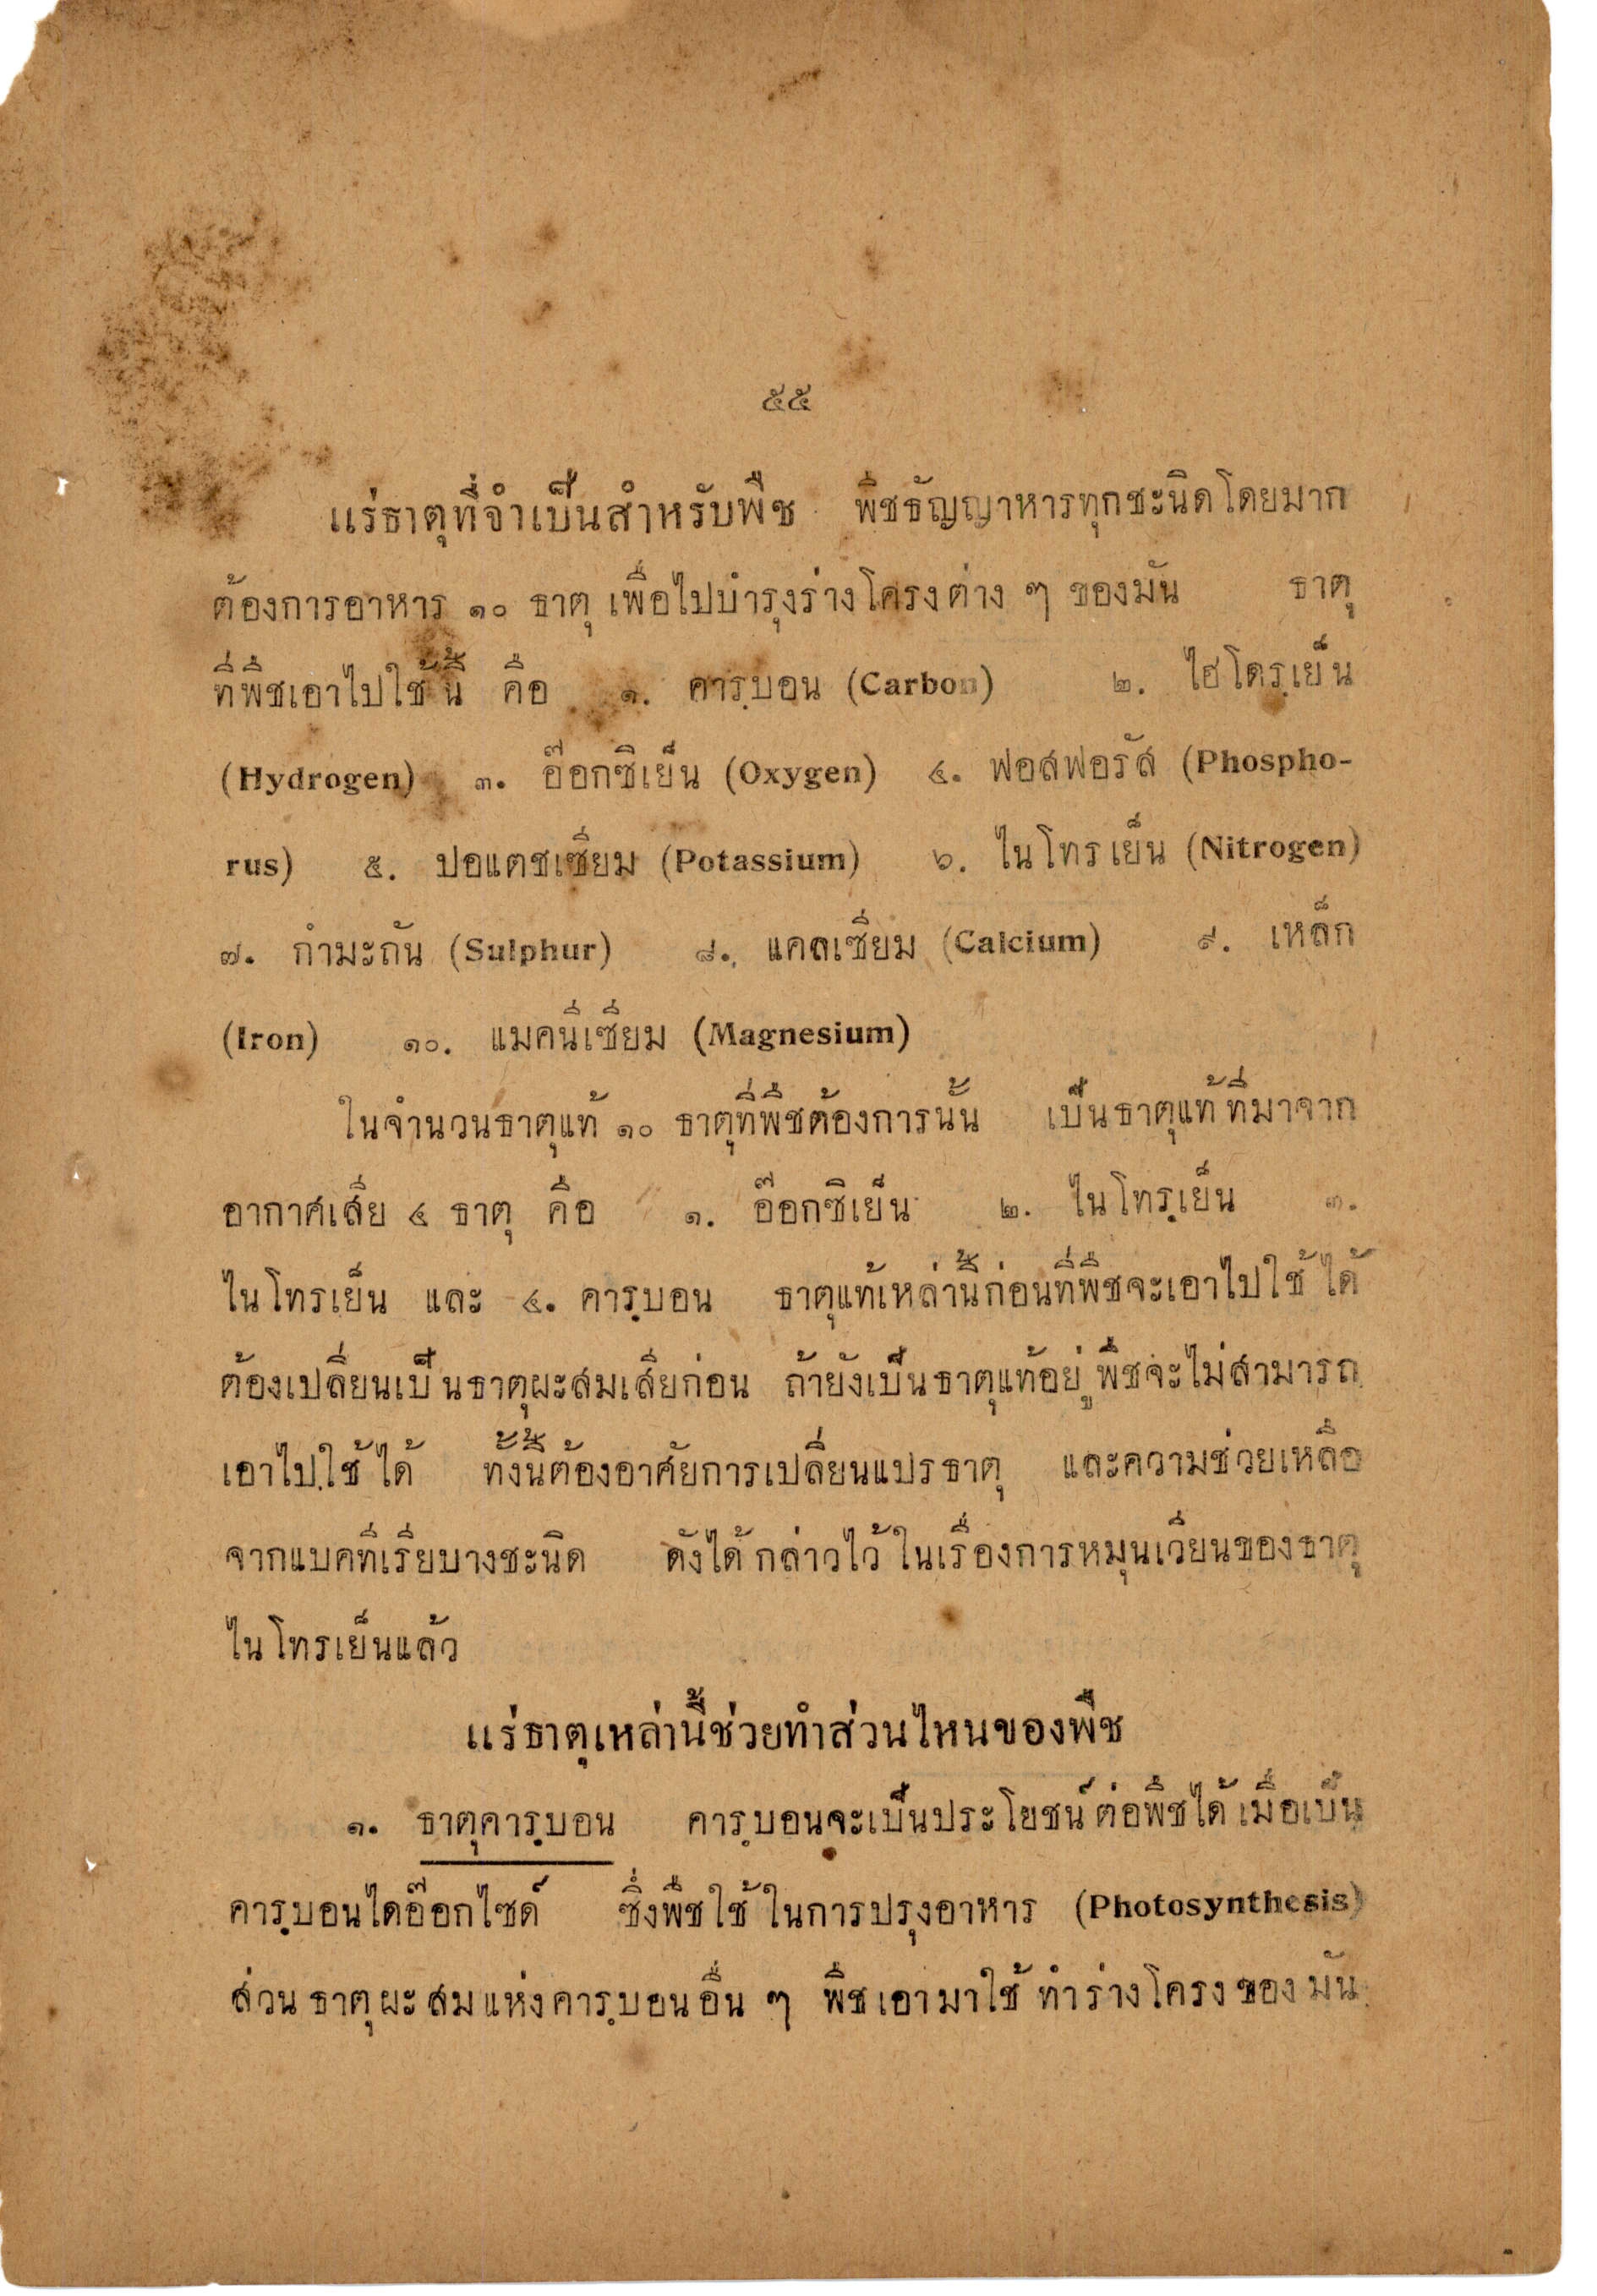 ๕๕
แร่ธาตุที่จำเป็นสำหรับพืช พืชธัญญาหารทุกชะนิดโดยมาก
ต้องการอาหาร ๑๐ ธาตุ เพื่อไปบำรุงร่างโครงต่าง ๆ ของมัน ธาตุ
ที่พืชเอาไปใช้นี้ คือ ๑. คารฺบอน (Carbon) ๒. ไฮโดรฺเย็น
(Hydrogen) ๓. อ๊อกซิเย็น (Oxygen) ๔. ฟอสฟอรัส (Phospho-
rus) ๕. ปอแตชเซี่ยม (Potassium) ๖. ไนโทรเย็น (Nitrogen)
๗. กำมะถัน (Sulphur) ๘. แคลเซี่ยม (Calcium) ๙. เหล็ก
(Iron) ๑๐. แมคนี่เซี่ยม (Magnesium)
ในจำนวนธาตุแท้ ๑๐ ธาตุที่พืชต้องการนั้น เป็นธาตุแท้ที่มาจาก
อากาศเสีย ๔ ธาตุ คือ ๑. อ๊อกซิเย็น ๒. ไนโทรฺเย็น ๓.
ไนโทรเย็น และ ๔. คารฺบอน ธาตุแท้เหล่านี้ก่อนที่พืชจะเอาไปใช้ได้
ต้องเปลี่ยนเป็นธาตุผะสมเสียก่อน ถ้ายังเป็นธาตุแท้อยู่ พืชจะไม่สามารถ
เอาไปใช้ได้ ทั้งนี้ต้องอาศัยการเปลี่ยนแปรธาตุ และความช่วยเหลือ
จากแบคทีเรียบางชะนิด ดังได้กล่าวไว้ในเรื่องการหมุนเวียนของธาตุ
ไนโทรเย็นแล้ว
แร่ธาตุเหล่านี้ช่วยทำส่วนไหนของพืช
๑. ธาตุคารฺบอน คารฺบอนจะเป็นประโยชน์ต่อพืชได้ เมื่อเป็น
คารฺบอนไดอ๊อกไซด์ ซึ่งพืชใช้ในการปรุงอาหาร (Photosynthesis)
ส่วนธาตุผะสมแห่งคารฺบอนอื่น ๆ พืชเอามาใช้ทำร่างโครงของมัน